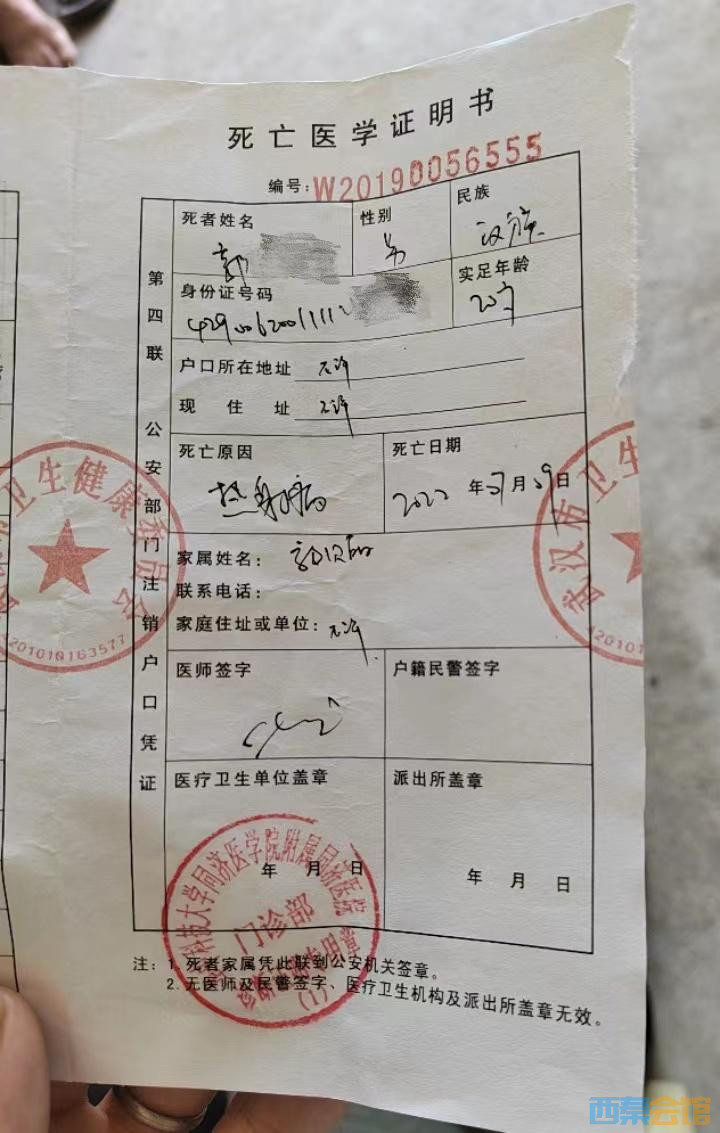 死亡医学证明书
编号:W20190056555
第四联 公安部门注销户口凭证
死者姓名
郭
性别
男
民族
汉族
身份证号码
42900620011112
实足年龄
20岁
户口所在地址 不详
现住址 不详
死亡原因
热射病
死亡日期
2022年07月09日
家属姓名:
联系电话:
家庭住址或单位: 不详
医师签字
户籍民警签字
医疗卫生单位盖章
年 月 日
派出所盖章
年 月 日
注: 1. 死者家属凭此联到公安机关签章。
2. 无医师及民警签字、医疗卫生机构及派出所盖章无效。
卫生健康委员会
4201010163577
武汉市卫生
4201010
科技大学同济医学院附属同济医院
门诊部
(1)
西秦会馆